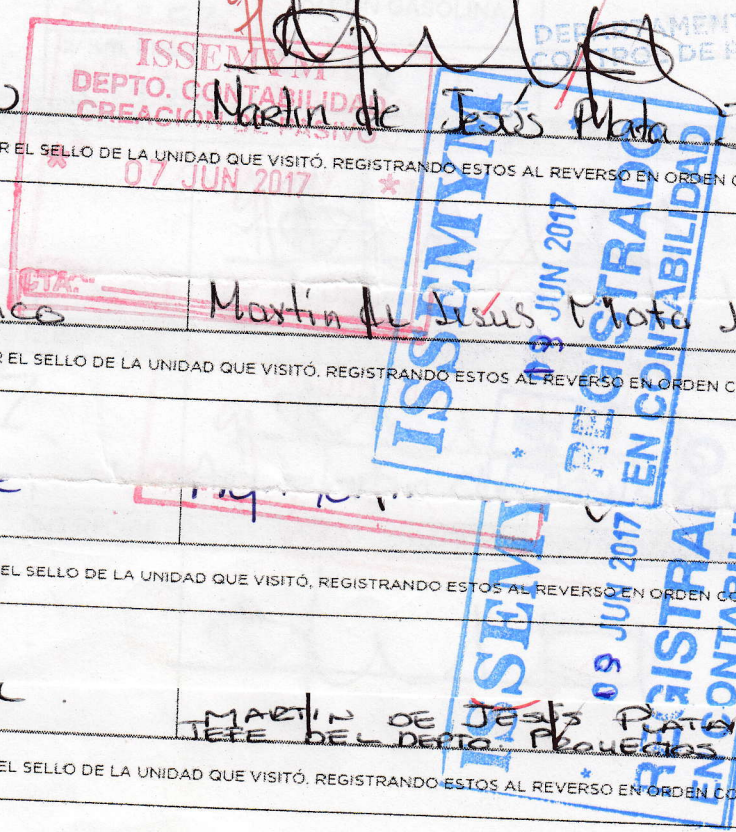 DEPARTAMENT
CONTROL DE P
ISSEMYM
DEPTO. CONTABILIDAD
CREACION DE PASIVO
07 JUN 2017
CTA.
Martin de Jesús Mata
R EL SELLO DE LA UNIDAD QUE VISITÓ. REGISTRANDO ESTOS AL REVERSO EN ORDEN C
ISSEMYM
09 JUN 2017
REGISTRADO
EN CONTABILIDAD
Martín de Jesus Mata J
R EL SELLO DE LA UNIDAD QUE VISITÓ. REGISTRANDO ESTOS AL REVERSO EN ORDEN C
EL SELLO DE LA UNIDAD QUE VISITÓ, REGISTRANDO ESTOS AL REVERSO EN ORDEN CO
ISSEMY
09 JUN 2017
REGISTRA
EN CONTABILI
MARTIN DE JESÚS PLATA
JEFE DEL DEPTO. PROYECTOS
EL SELLO DE LA UNIDAD QUE VISITÓ. REGISTRANDO ESTOS AL REVERSO EN ORDEN CO